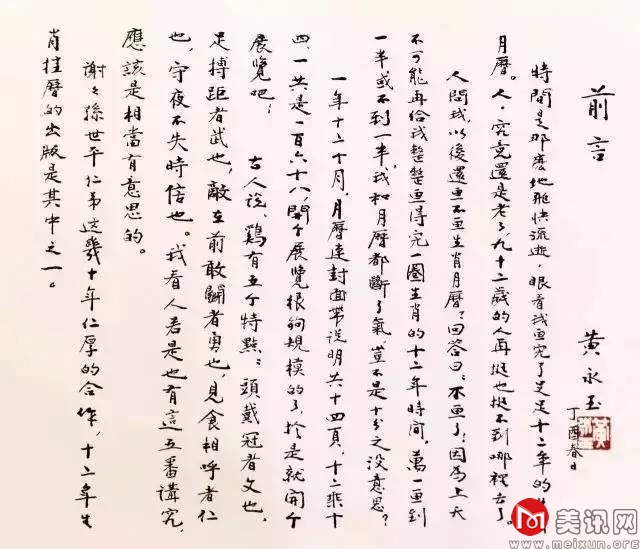 前言
黄永玉
丁酉春日
時間是那麽地飛快流逝，眼看我画完了足足十二年的生肖
月曆。人，究竟還是老了，九十二歲的人再挺也挺不到哪裡去了。
人問我以後還画不画生肖月曆？回答曰：不画了！因為上天
不可能再给我整整画得完一圈生肖的十二年時间，萬一画到
一半或不到一半，我和月曆都斷了氣，豈不是十分之没意思？
一年十二个月，月曆連封面带说明共十四頁，十二乘十
四，一共是一百六十八，開个展覽很夠規模的了，於是就開个
展覽吧！ 古人说，鷄有五个特點：頭戴冠者文也，
足搏距者武也，敵在前敢鬭者勇也，見食相呼者仁
也，守夜不失時信也。我看人若是也有這五番講究，
應該是相當有意思的。
謝々孫世平仁弟这幾十年仁厚的合作，十二年生
肖挂曆的出版是其中之一。
美讯网
www.meixun.org